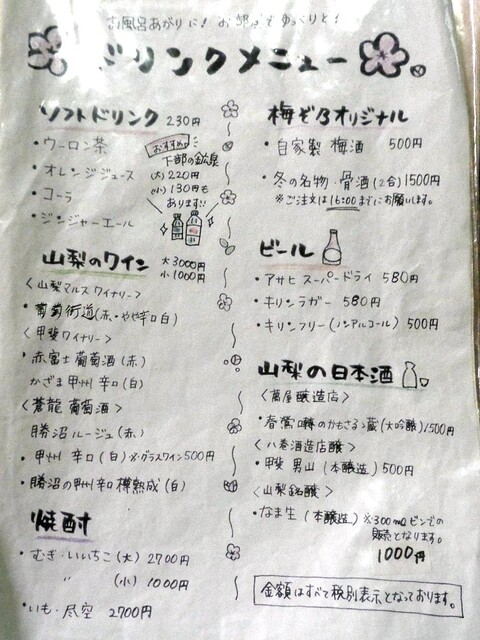 お風呂あがりに! お部屋でゆっくりと!
ドリンクメニュー
ソフトドリンク 230円
・ウーロン茶
・オレンジジュース
・コーラ
・ジンジャーエール
おすすめ
下部の鉱泉
(大)220円
(小)130円も
あります!!
山梨のワイン 大3000円
小1000円
〈山梨マルスワイナリー〉
・葡萄街道(赤・やや辛口白)
〈甲斐ワイナリー〉
・赤富士葡萄酒(赤)
かざま甲州辛口(白)
〈蒼龍葡萄酒〉
勝沼ルージュ(赤)
・甲州 辛口(白)※グラスワイン500円
・勝沼の甲州辛口樽熟成(白)
焼酎
・むぎ・いいちこ(大) 2700円
〃 (小) 1000円
・いも・尽空 2700円
梅ぞのオリジナル
・自家製 梅酒 500円
・冬の名物・骨酒(2合)1500円
※ご注文は16:00までにお願います。
ビール
・アサヒスーパードライ 580円
・キリンラガー 580円
・キリンフリー(ノンアルコール) 500円
山梨の日本酒
〈萬屋醸造店〉
・春鶯囀のかもさるゝ蔵(大吟醸)1500円
〈八巻酒造店醸〉
・甲斐 男山(本醸造)500円
〈山梨銘醸〉
・なま生(本醸造)※300mlビンでの
販売となります。
1000円
金額はすべて税別表示となっております。